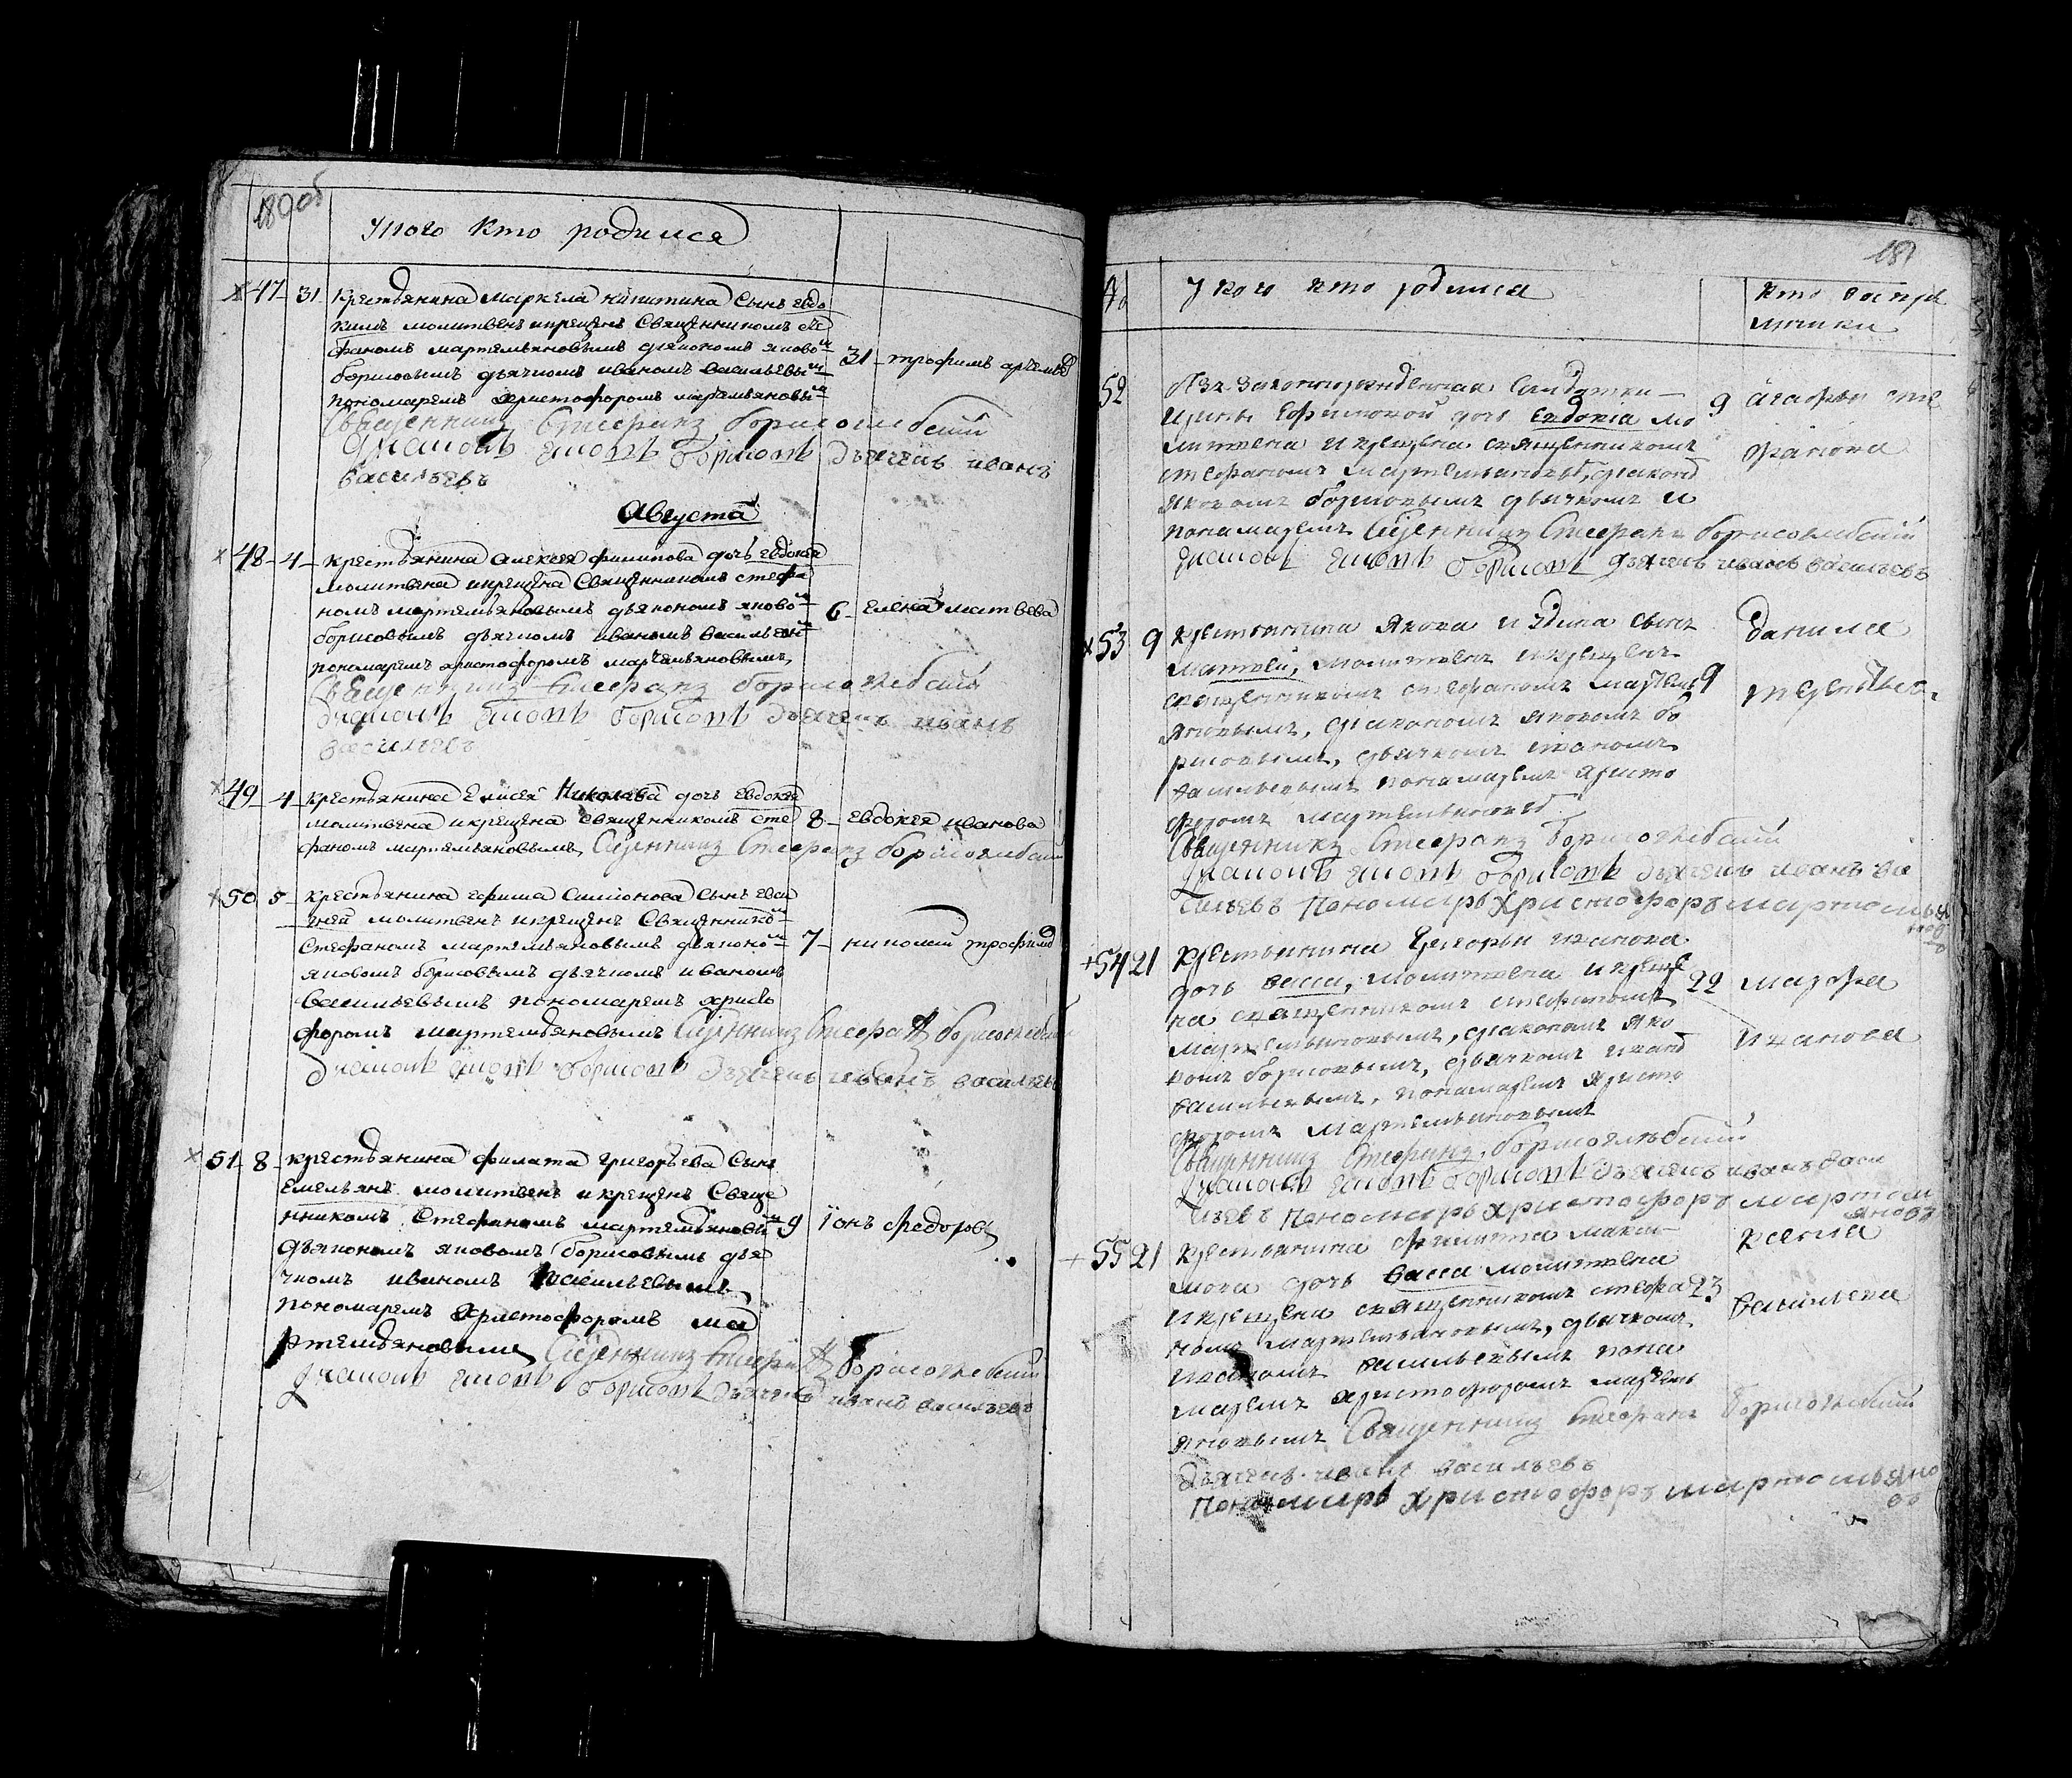 180 об
У кого кто родился
47 31 Крестьянина Маркела Никитина сынъ Евдо
кимъ молитвенъ и крещенъ Священникомъ Сте
фаномъ Мартемьяновымъ дьякономъ яковом
борисовымъ дьячкомъ иваномъ васильевым 31 трофимъ артемьев
пономаремъ христофоромъ мартемьяновым
Священникъ Стефанъ борисоглебский
Диаконъ Яковъ Борисовъ Дьячекъ иванъ
васильевъ
Августа
48 4 крестьянина алексея филипова дочь евдокея
молитвена и крещена Священникомъ стефа
номъ мартемьяновымъ дьякономъ яковом 6 елена матвеева
борисовымъ дьячкомъ иваномъ васильевым
пономаремъ христофоромъ мартемьяновымъ
Священникъ Стефанъ борисоглебский
Диаконъ Яковъ Борисовъ Дьячекъ иванъ
васильевъ
49 4 крестьянина Елисея Николаева дочь евдокея
молитвена и крещена священникомъ сте 8 евдокея иванова
фаномъ мартемьяновымъ Священникъ Стефанъ борисоглебский
50 5 крестьянина Сампонова сынъ евси
гней молитвенъ и крещенъ Священником
Стефаномъ мартемьяновымъ дьяконом 7 николай трофимов
яковомъ борисовымъ дьячкомъ иваномъ
васильевымъ пономаремъ христо
форомъ мартемьяновымъ Священникъ Стефанъ борисоглебский
Диаконъ Яковъ Борисовъ Дьячекъ иванъ васильевъ
51 8 крестьянина филата григорьева сынъ
Емельянъ молитвенъ и крещенъ Свяще
нникомъ Стефаномъ мартемьяновым 9 іонъ федоровъ
дьякономъ яковомъ борисовымъ дья
чкомъ иваномъ васильевымъ
пономаремъ христофоромъ ма
ртемьяновымъ Священникъ Стефанъ борисоглебский
Диаконъ Яковъ Борисовъ Дьячекъ иванъ васильевъ
181
У кого кто родился кто воспри
имники
52 незаконнорожденная солдатки
Ефимовой дочь Евдокіа мо 9 агафья сте
литвена и крещена священникомъ фанова
стефаномъ мартемьяновым, диаконом
яковомъ борисовымъ дьячкомъ и
понамаремъ Священникъ Стефанъ борисоглебский
Диаконъ Яковъ Борисовъ Дьячекъ иванъ васильевъ
53 9 крестьянина Якова сынъ данила
матвей, молитвенъ и крещенъ
священникомъ стефаномъ мартемь 9
яновымъ, диакономъ яковомъ бо
рисовымъ, дьячкомъ иваномъ
васильевымъ понамаремъ христо
форомъ мартемьяновым
Священникъ Стефанъ борисоглебский
Диаконъ Яковъ Борисовъ Дьячекъ иванъ ва
сильевъ Пономарь Христофоръ мартемья
новъ
54 21 крестьянина Григорья иванова
дочь васса, молитвена и креще 22 марфа
на священникомъ стефаномъ
мартемьяновымъ, диакономъ яко иванова
вомъ борисовымъ, дьячкомъ иваном
васильевымъ, понамаремъ христо
форомъ мартемьяновымъ
Священникъ Стефанъ борисоглебский
Диаконъ Яковъ Борисовъ Дьячекъ иванъ васи
льевъ Пономарь Христофоръ мартем
яновъ
55 21 крестьянина филипа макси ксенiа
мова дочь васса молитвена
и крещена священникомъ стефа 23 васильева
номъ мартемьяновымъ, дьячкомъ
иваномъ васильевымъ пона
маремъ христофоромъ мартемь
яновымъ Священникъ Стефанъ борисоглебский
Дьячекъ иванъ васильевъ
Пономарь Христофоръ мартемьяно
въ